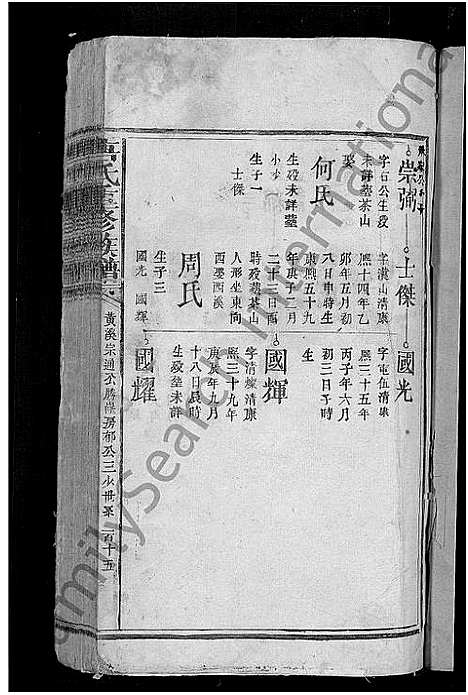 崇弼
字石公生歿
未詳塟茶山
娶
何氏
生歿未詳塟
小水
生子一
士傑
士傑
字漢山清康
熙十四年乙
卯年五月初
八日申時生
康熙五十九
年庚子二月
二十三日酉
時歿塟茶山
人形坐東向
西娶西溪
周氏
生子三
國光 國輝
國光
字電伍清康
熙三十五年
丙子年六月
初三日子時
生
國輝
字清燦清康
熙三十九年
庚辰年九月
十八日辰時
國耀
生歿塟未詳
氏重修族譜
黃溪宗通公勝 房郁公三 世系 一百十五
FamilySearch International